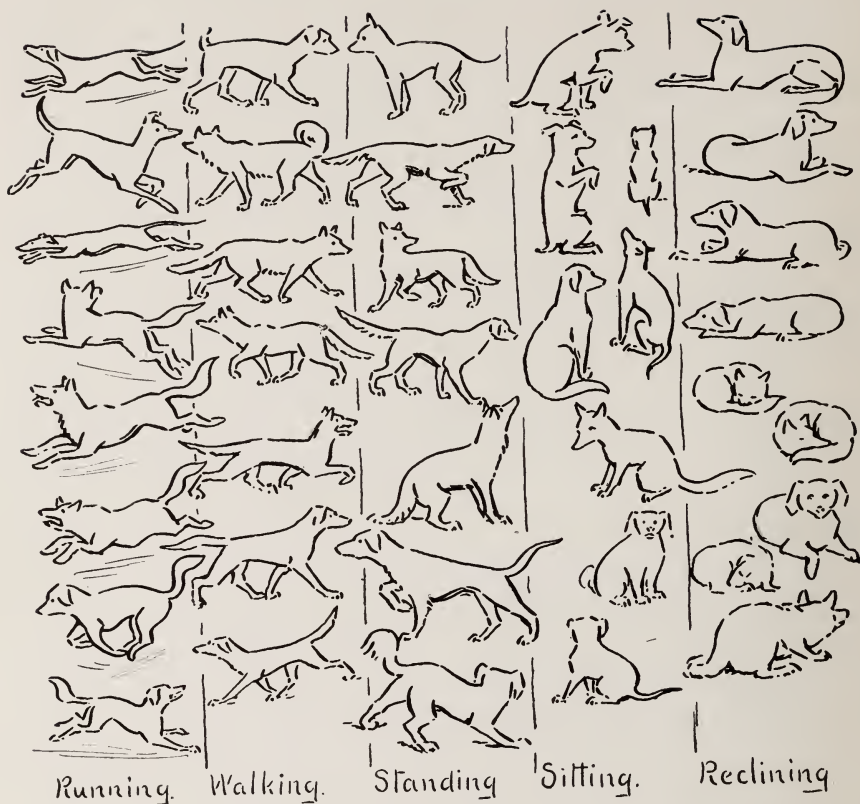 Running. Walking. Standing Sitting. Reclining